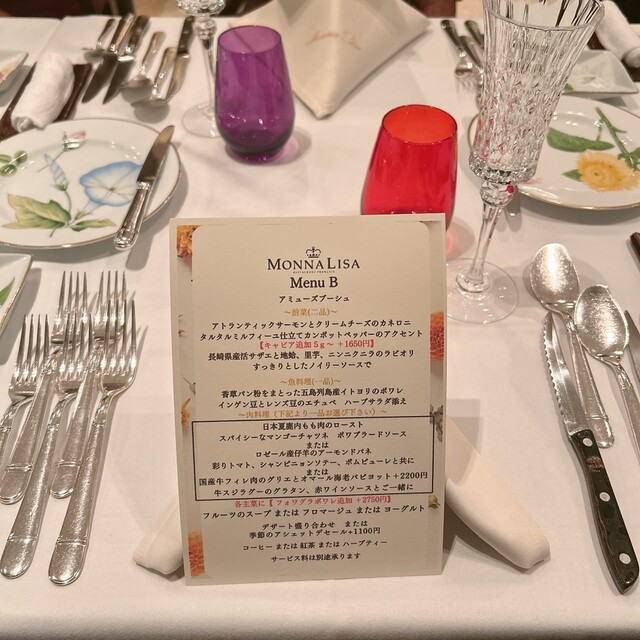 MONNA LISA
RESTAURANT FRANÇAIS
Menu B
アミューズブーシュ
〜前菜(二品)〜
アトランティックサーモンとクリームチーズのカネロニ
タルタルミルフィーユ仕立てカンポットペッパーのアクセント
【キャビア追加5g〜 +1650円】
長崎県産活サザエと地蛤、里芋、ニンニクニラのラビオリ
すっきりとしたノイリーソースで
〜魚料理(一品)〜
香草パン粉をまとった五島列島産イトヨリのポワレ
インゲン豆とレンズ豆のエチュベ ハーブサラダ添え
〜肉料理(下記より一品お選び下さい)〜
日本夏鹿内もも肉のロースト
スパイシーなマンゴーチャツネ ポワブラードソース
または
ロゼール産仔羊のアーモンドパネ
彩りトマト、シャンピニョンソテー、ポムピューレと共に
または
国産牛フィレ肉のグリエとオマール海老パピヨット+2200円
牛スジラグーのグラタン、赤ワインソースとご一緒に
各主菜に【フォワグラポワレ追加 +2750円】
フルーツのスープ または フロマージュ または ヨーグルト
デザート盛り合わせ または
季節のアシェットデセール+1100円
コーヒー または 紅茶 または ハーブティー
サービス料は別途承ります